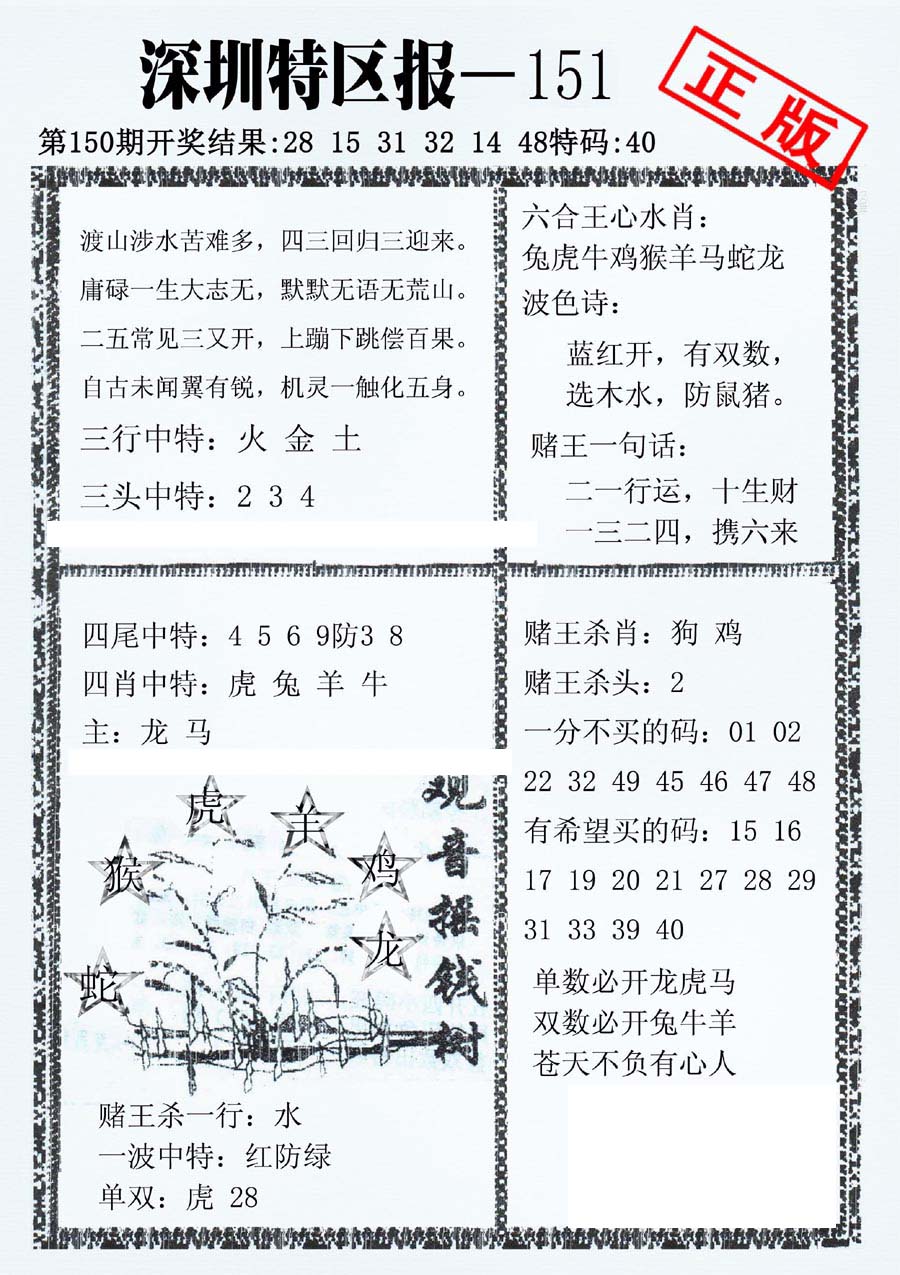 深圳特区报—151
正版
第150期开奖结果:28 15 31 32 14 48特码:40
渡山涉水苦难多，四三回归三迎来。
庸碌一生大志无，默默无语无荒山。
二五常见三又开，上蹦下跳偿百果。
自古未闻翼有锐，机灵一触化五身。
三行中特：火 金 土
三头中特：2 3 4
六合王心水肖：
兔虎牛鸡猴羊马蛇龙
波色诗：
蓝红开，有双数，
选木水，防鼠猪。
赌王一句话：
二一行运，十生财
一三二四，携六来
四尾中特：4 5 6 9防3 8
四肖中特：虎 兔 羊 牛
主：龙 马
虎
羊
猴
鸡
龙
蛇
观音摇钱树
赌王杀一行：水
一波中特：红防绿
单双：虎 28
赌王杀肖：狗 鸡
赌王杀头：2
一分不买的码：01 02
22 32 49 45 46 47 48
有希望买的码：15 16
17 19 20 21 27 28 29
31 33 39 40
单数必开龙虎马
双数必开兔牛羊
苍天不负有心人